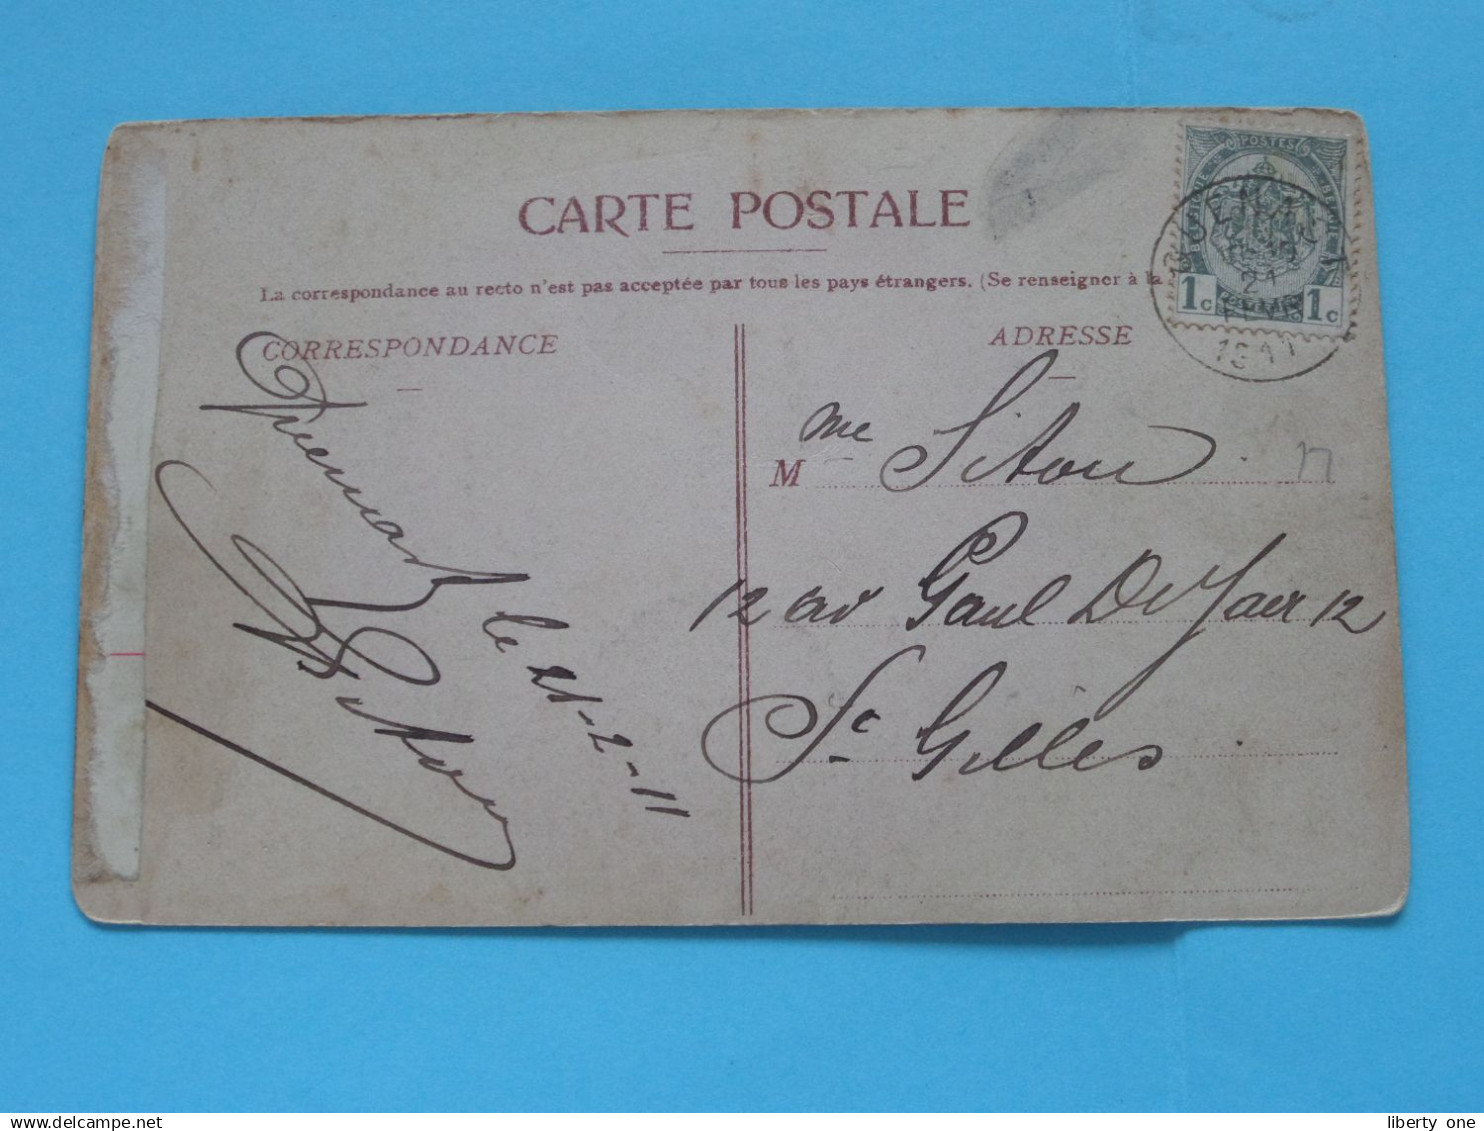 CARTE POSTALE
La correspondance au recto n'est pas acceptée par tous les pays étrangers. (Se renseigner à la
CORRESPONDANCE
ADRESSE
Quenast
le 21-2-11
M me Siton
12 av Paul De Jaer 12
St Gilles
17
POSTES
1c 1c
21
1911
delcampe.net
liberty_one